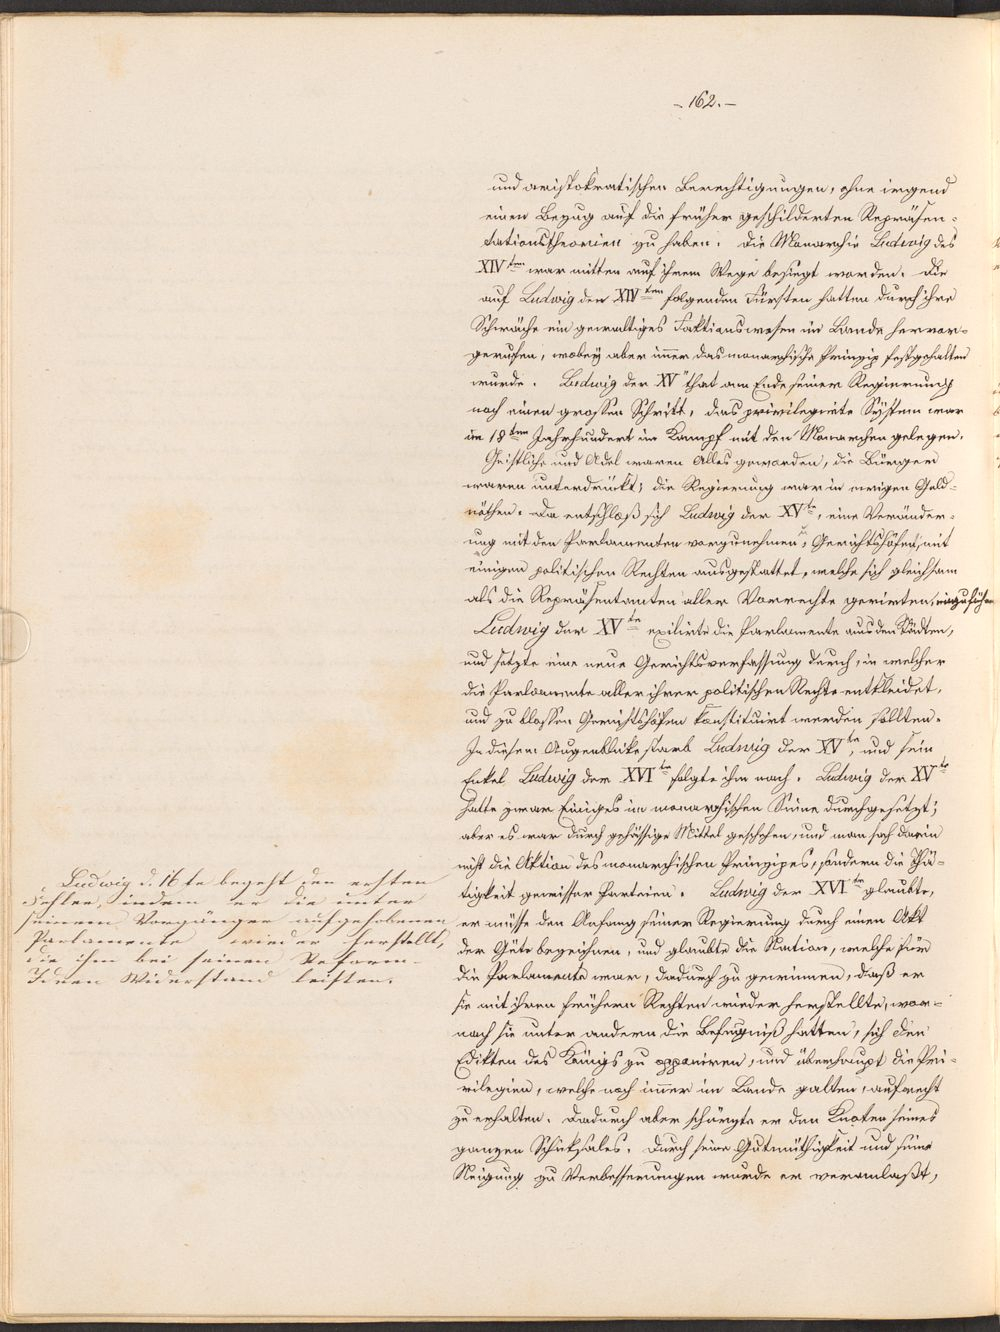 - 162. -
und aristokratischen Berechtigungen, ohne irgend
einen Bezug auf die früher geschilderten Repräsen-
tationstheorien zu haben. Die Monarchie Ludwig des
XIVten war mitten auf ihrem Wege besiegt worden. Die
auf Ludwig den XIVten folgenden Fürsten hatten durch ihre
Schwäche ein gewaltiges Faktionswesen im Lande hervor-
gerufen, wobey aber immer das monarchische Prinzip festgehalten
wurde. Ludwig der XV that am Ende seiner Regierung
noch einen grossen Schritt, das privilegirte System war
im 18ten Jahrhundert im Kampf mit den Monarchen gelegen.
Geistliche und Adel waren Alles geworden, die Bürger
waren unterdrückt; die Regierung war in ewigen Geld-
nöthen. Da entschloß sich Ludwig der XVte, eine Veränder-
ung mit den Parlamenten vorzunehmen, Gerichtshöfen, mit
einigen politischen Rechten ausgestattet, welche sich gleichsam
als die Repräsentanten aller Vorrechte gerirten, einzuführen
Ludwig der XVte exilirte die Parlamente aus den Städten,
und setzte eine neue Gerichtsverfassung durch, in welcher
die Parlamente aller ihrer politischen Rechte entkleidet,
und zu blossen Gerichtshöfen konstituirt werden sollten.
In diesem Augenblicke starb Ludwig der XVte, und sein
Enkel Ludwig der XVIte folgte ihm nach. Ludwig der XVte
hatte zwar Einiges im monarchischen Sinne durchgesetzt;
aber es war durch gehässige Mittel geschehen, und man sah darin
nicht die Aktion des monarchischen Prinzipes, sondern die Thä-
tigkeit gewisser Parteien. Ludwig der XVIte glaubte,
er müsse den Anfang seiner Regierung durch einen Akt
der Güte bezeichnen, und glaubte die Nation, welche für
die Parlamente war, dadurch zu gewinnen, daß er
sie mit ihren frühern Rechten wieder herstellte, wor-
nach sie unter andern die Befugniß hatten, sich den
Edikten des Königs zu opponiren, und überhaupt die Pri-
vilegien, welche noch immer im Lande galten, aufrecht
zu erhalten. Dadurch aber schürzte er den Knoten seines
ganzen Schicksales. Durch seine Gutmüthigkeit und seine
Neigung zu Verbesserungen wurde er veranlaßt,
Ludwig d. 16te begeht den ersten
Fehler, indem er die unter
seinem Vorgänger aufgehobenen
Parlamente wieder herstellt,
die ihm bei seinen Reform-
Ideen Widerstand leisten.